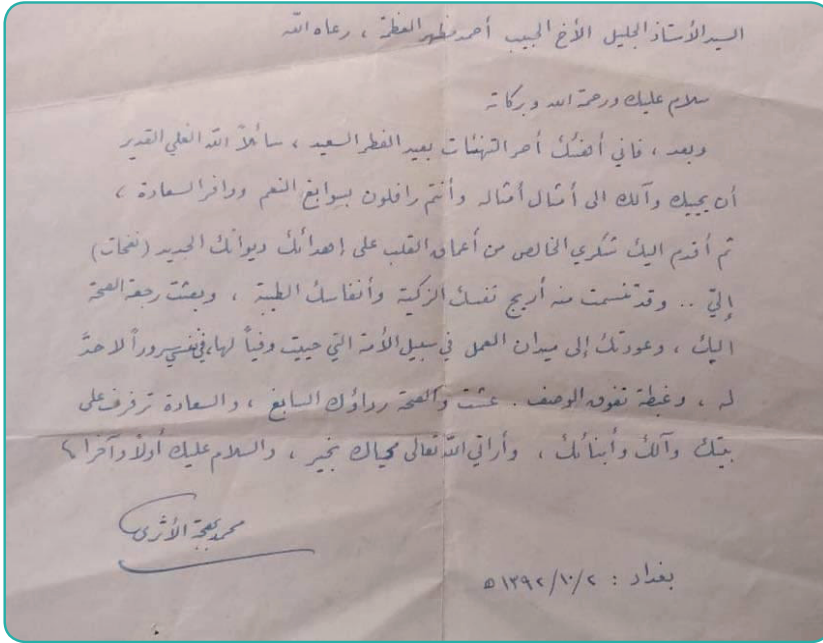 السيد الأستاذ الجليل الأخ الحبيب أحمد مظهر العظمة ، رعاه الله
سلام عليك ورحمة الله وبركاته
وبعد ، فاني أهنئك أحر التهنئات بعيد الفطر السعيد ، سائلاً الله العلي القدير
أن يحييك وآلك الى أمثال أمثاله وأنتم رافلون بسوابغ النعم ووافر السعادة ،
ثم أقدم اليك شكري الخالص من أعماق القلب على إهدائك ديوانك الجديد (نفحات)
إليّ .. وقد تنسمت منه أريج نفسك الزكية وأنفاسك الطيبة ، وبعثت رجعة الصحة
اليك ، وعودتك إلى ميدان العمل في سبيل الأمة التي حييت وفياً لها، في نفسي سروراً لا حدّ
له ، وغبطة تفوق الوصف . عشت والصحة رداؤك السابغ ، والسعادة ترفرف على
بيتك وآلك وأبنائك ، وأراني الله تعالى محياك بخير ، والسلام عليك أولاً وآخراً
محمد بهجة الأثري
بغداد : ١٣٩٢/١٠/٢ ه